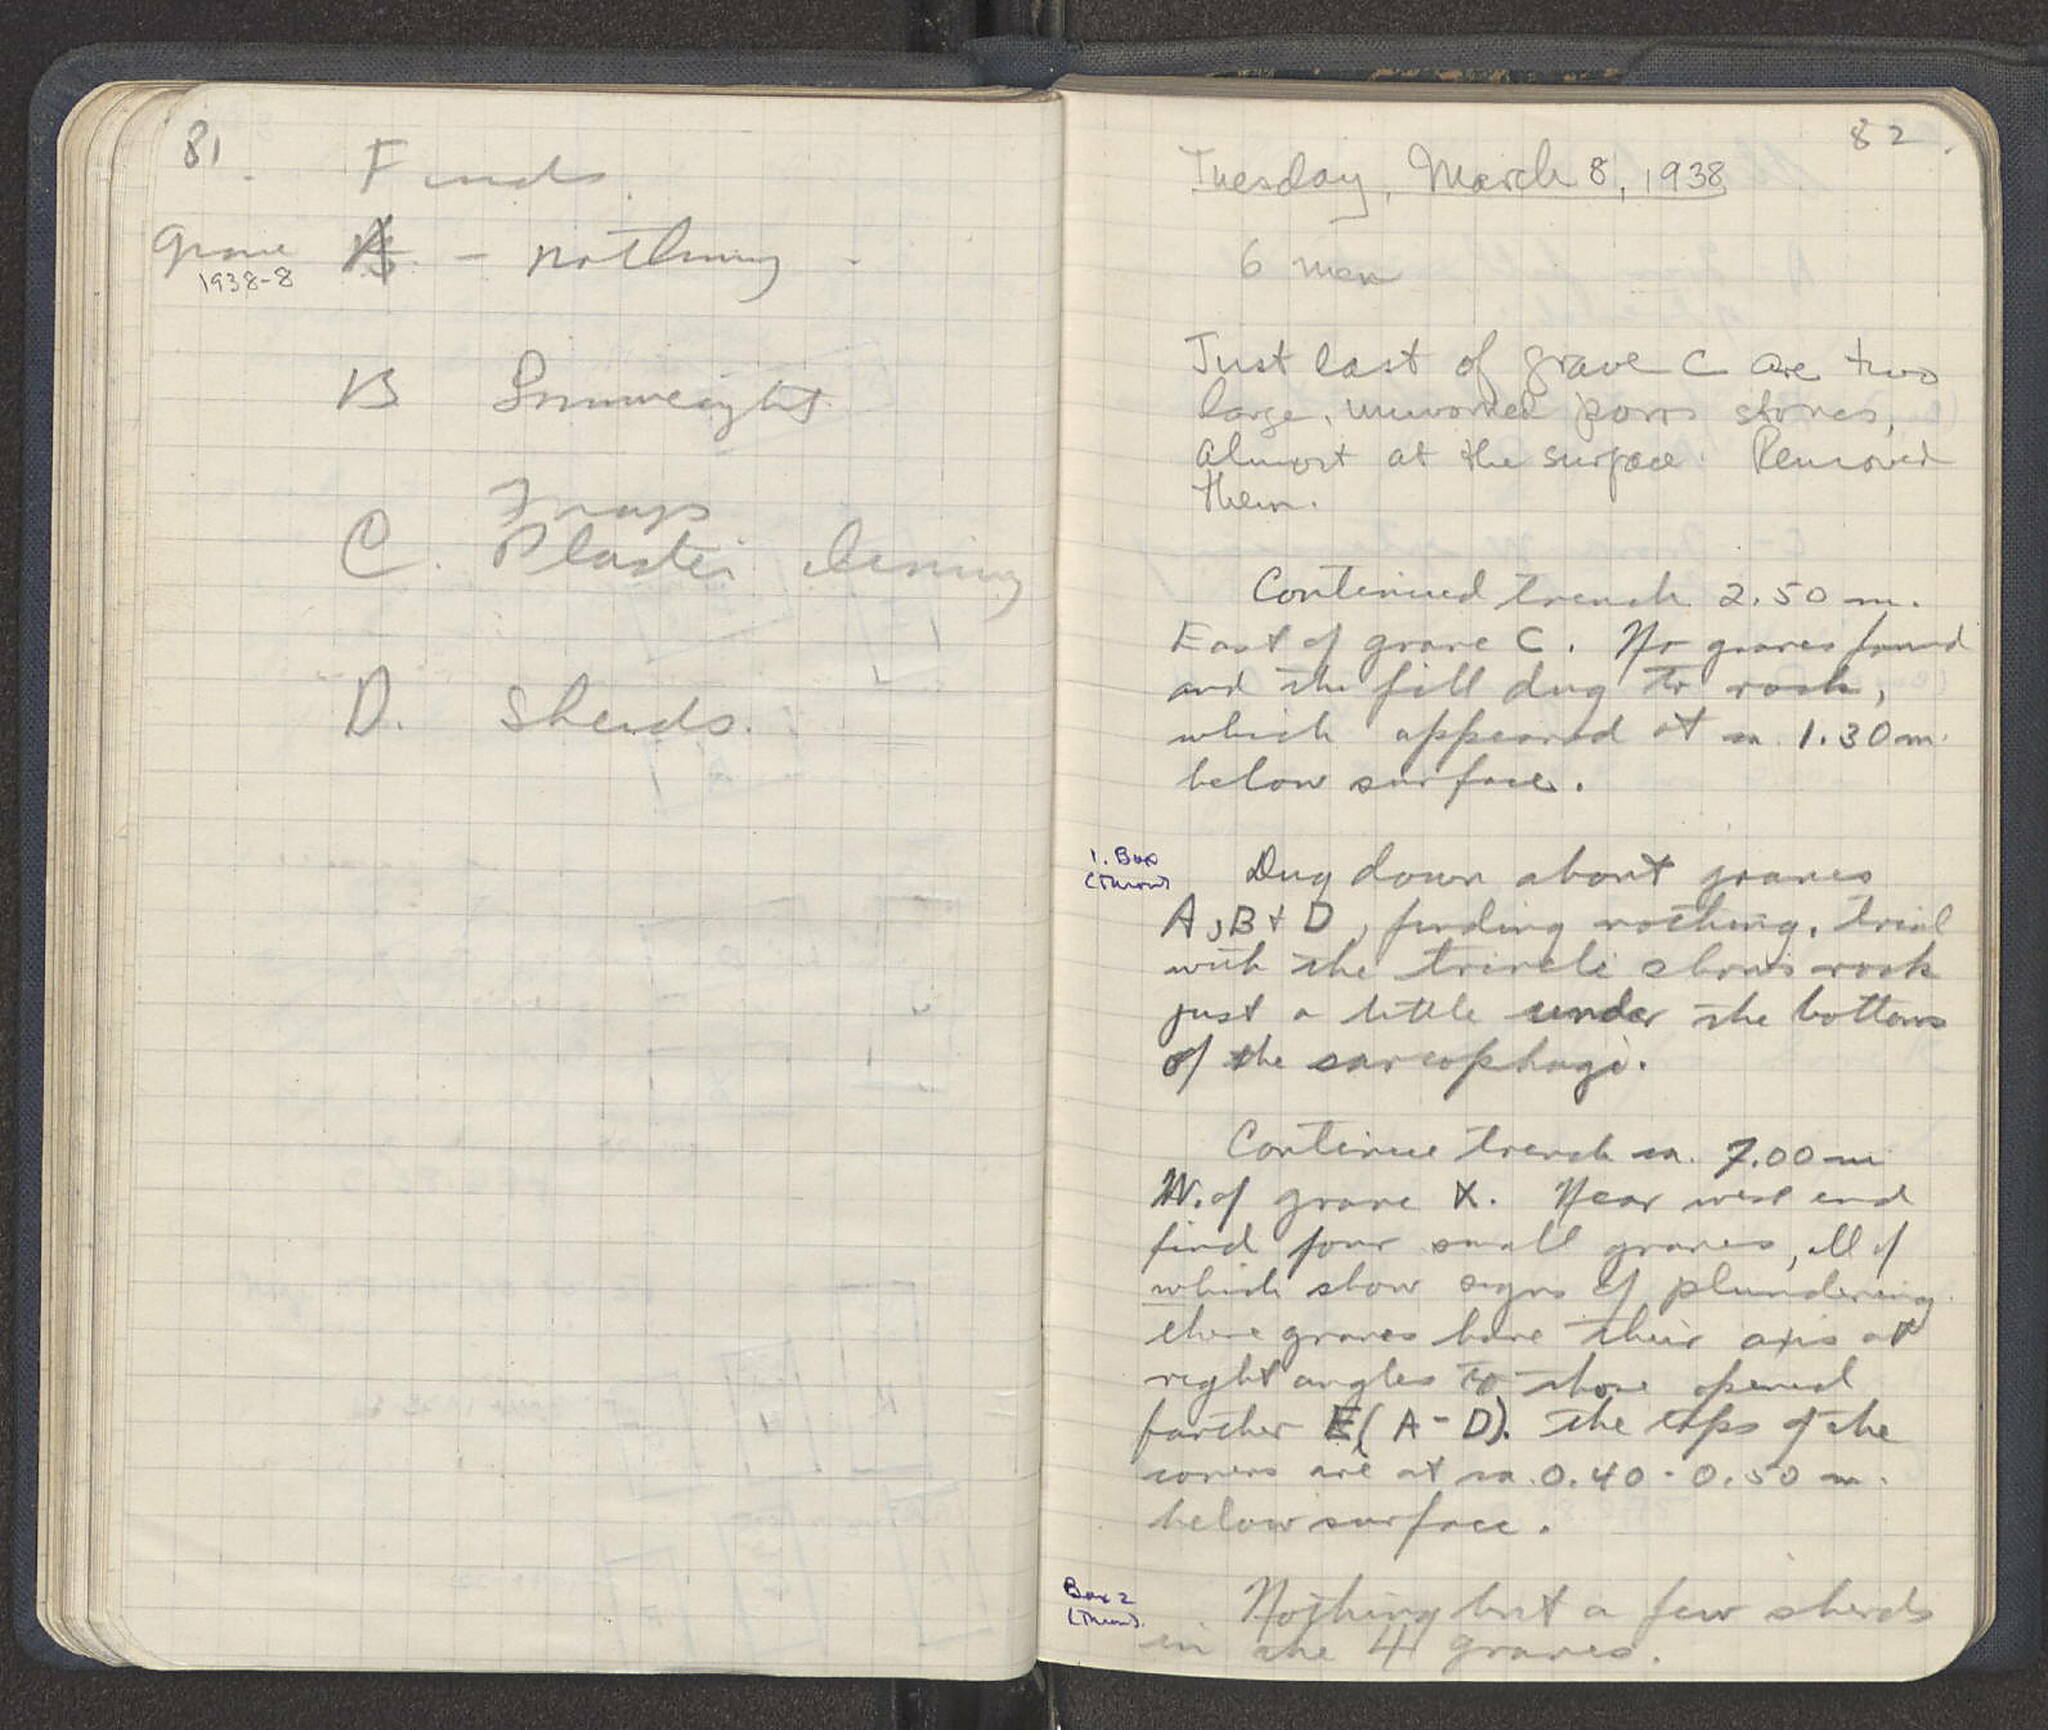 81.
Finds.
Grave A - nothing.
1938-8
B Loomweight
Frags
C. Plaster lining
D. Sherds.
82.
Tuesday, March 8, 1938
6 men
Just east of grave C are two
large, unworked poros stones,
almost at the surface. Removed
them.
Continued trench 2.50 m.
East of grave C. No graves found
and the fill dug to rock,
which appeared at ca. 1.30 m.
below surface.
1. Box
(Thrown)
Dug down about graves
A, B + D, finding nothing. trial
with the triveli shows rock
just a little under the bottoms
of the sarcophagi.
Continue trench ca. 7.00 m
W. of grave X. Near west end
find four small graves, all of
which show signs of plundering.
these graves have their axis at
right angles to those opened
farther E (A - D). The tops of the
covers are at ca. 0.40 - 0.50 m.
below surface.
Box 2
(Thrown).
Nothing but a few sherds
in the 4 graves.